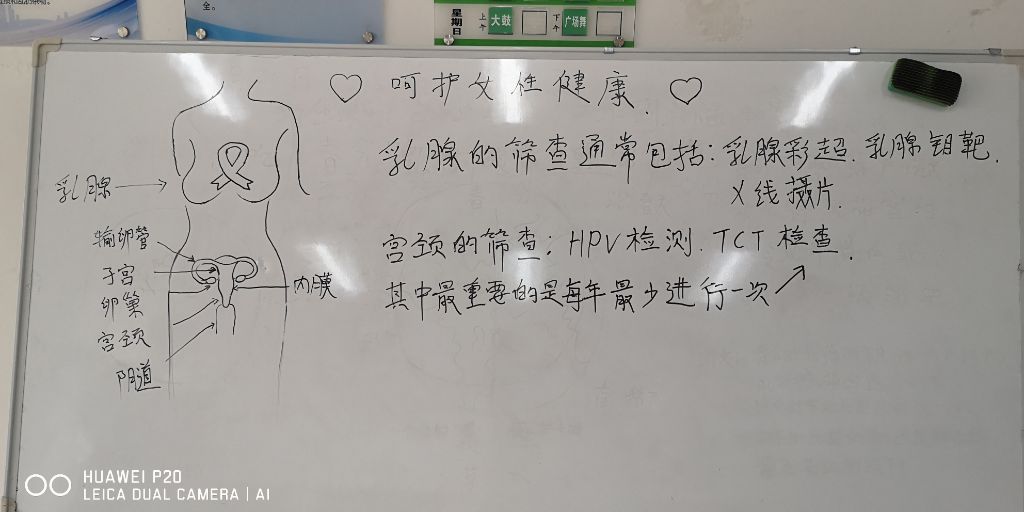 全。
星期日
上午
大鼓
下午
广场舞
♡ 呵护女性健康. ♡
乳腺的筛查通常包括:乳腺彩超.乳腺钼靶.
X线摄片.
宫颈的筛查:HPV检测.TCT检查.
其中最重要的是每年最少进行一次
乳腺
输卵管
子宫
卵巢
宫颈
阴道
内膜
HUAWEI P20
LEICA DUAL CAMERA | AI